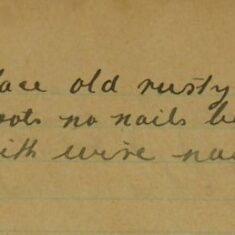 lace old rusty
oots no nails b
ith wire na